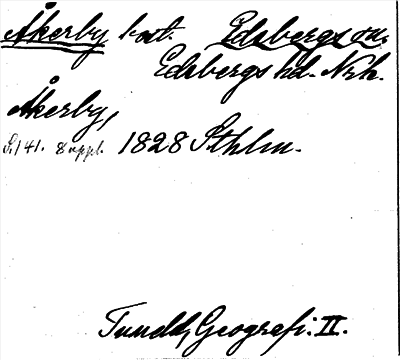 Åkerby kort. Edsbergs sn.
Edsbergs hd. Nrk.
Åkerby,
S. 141. 8 uppl. 1828 Sthlm.
Tuneld, Geografi. II.